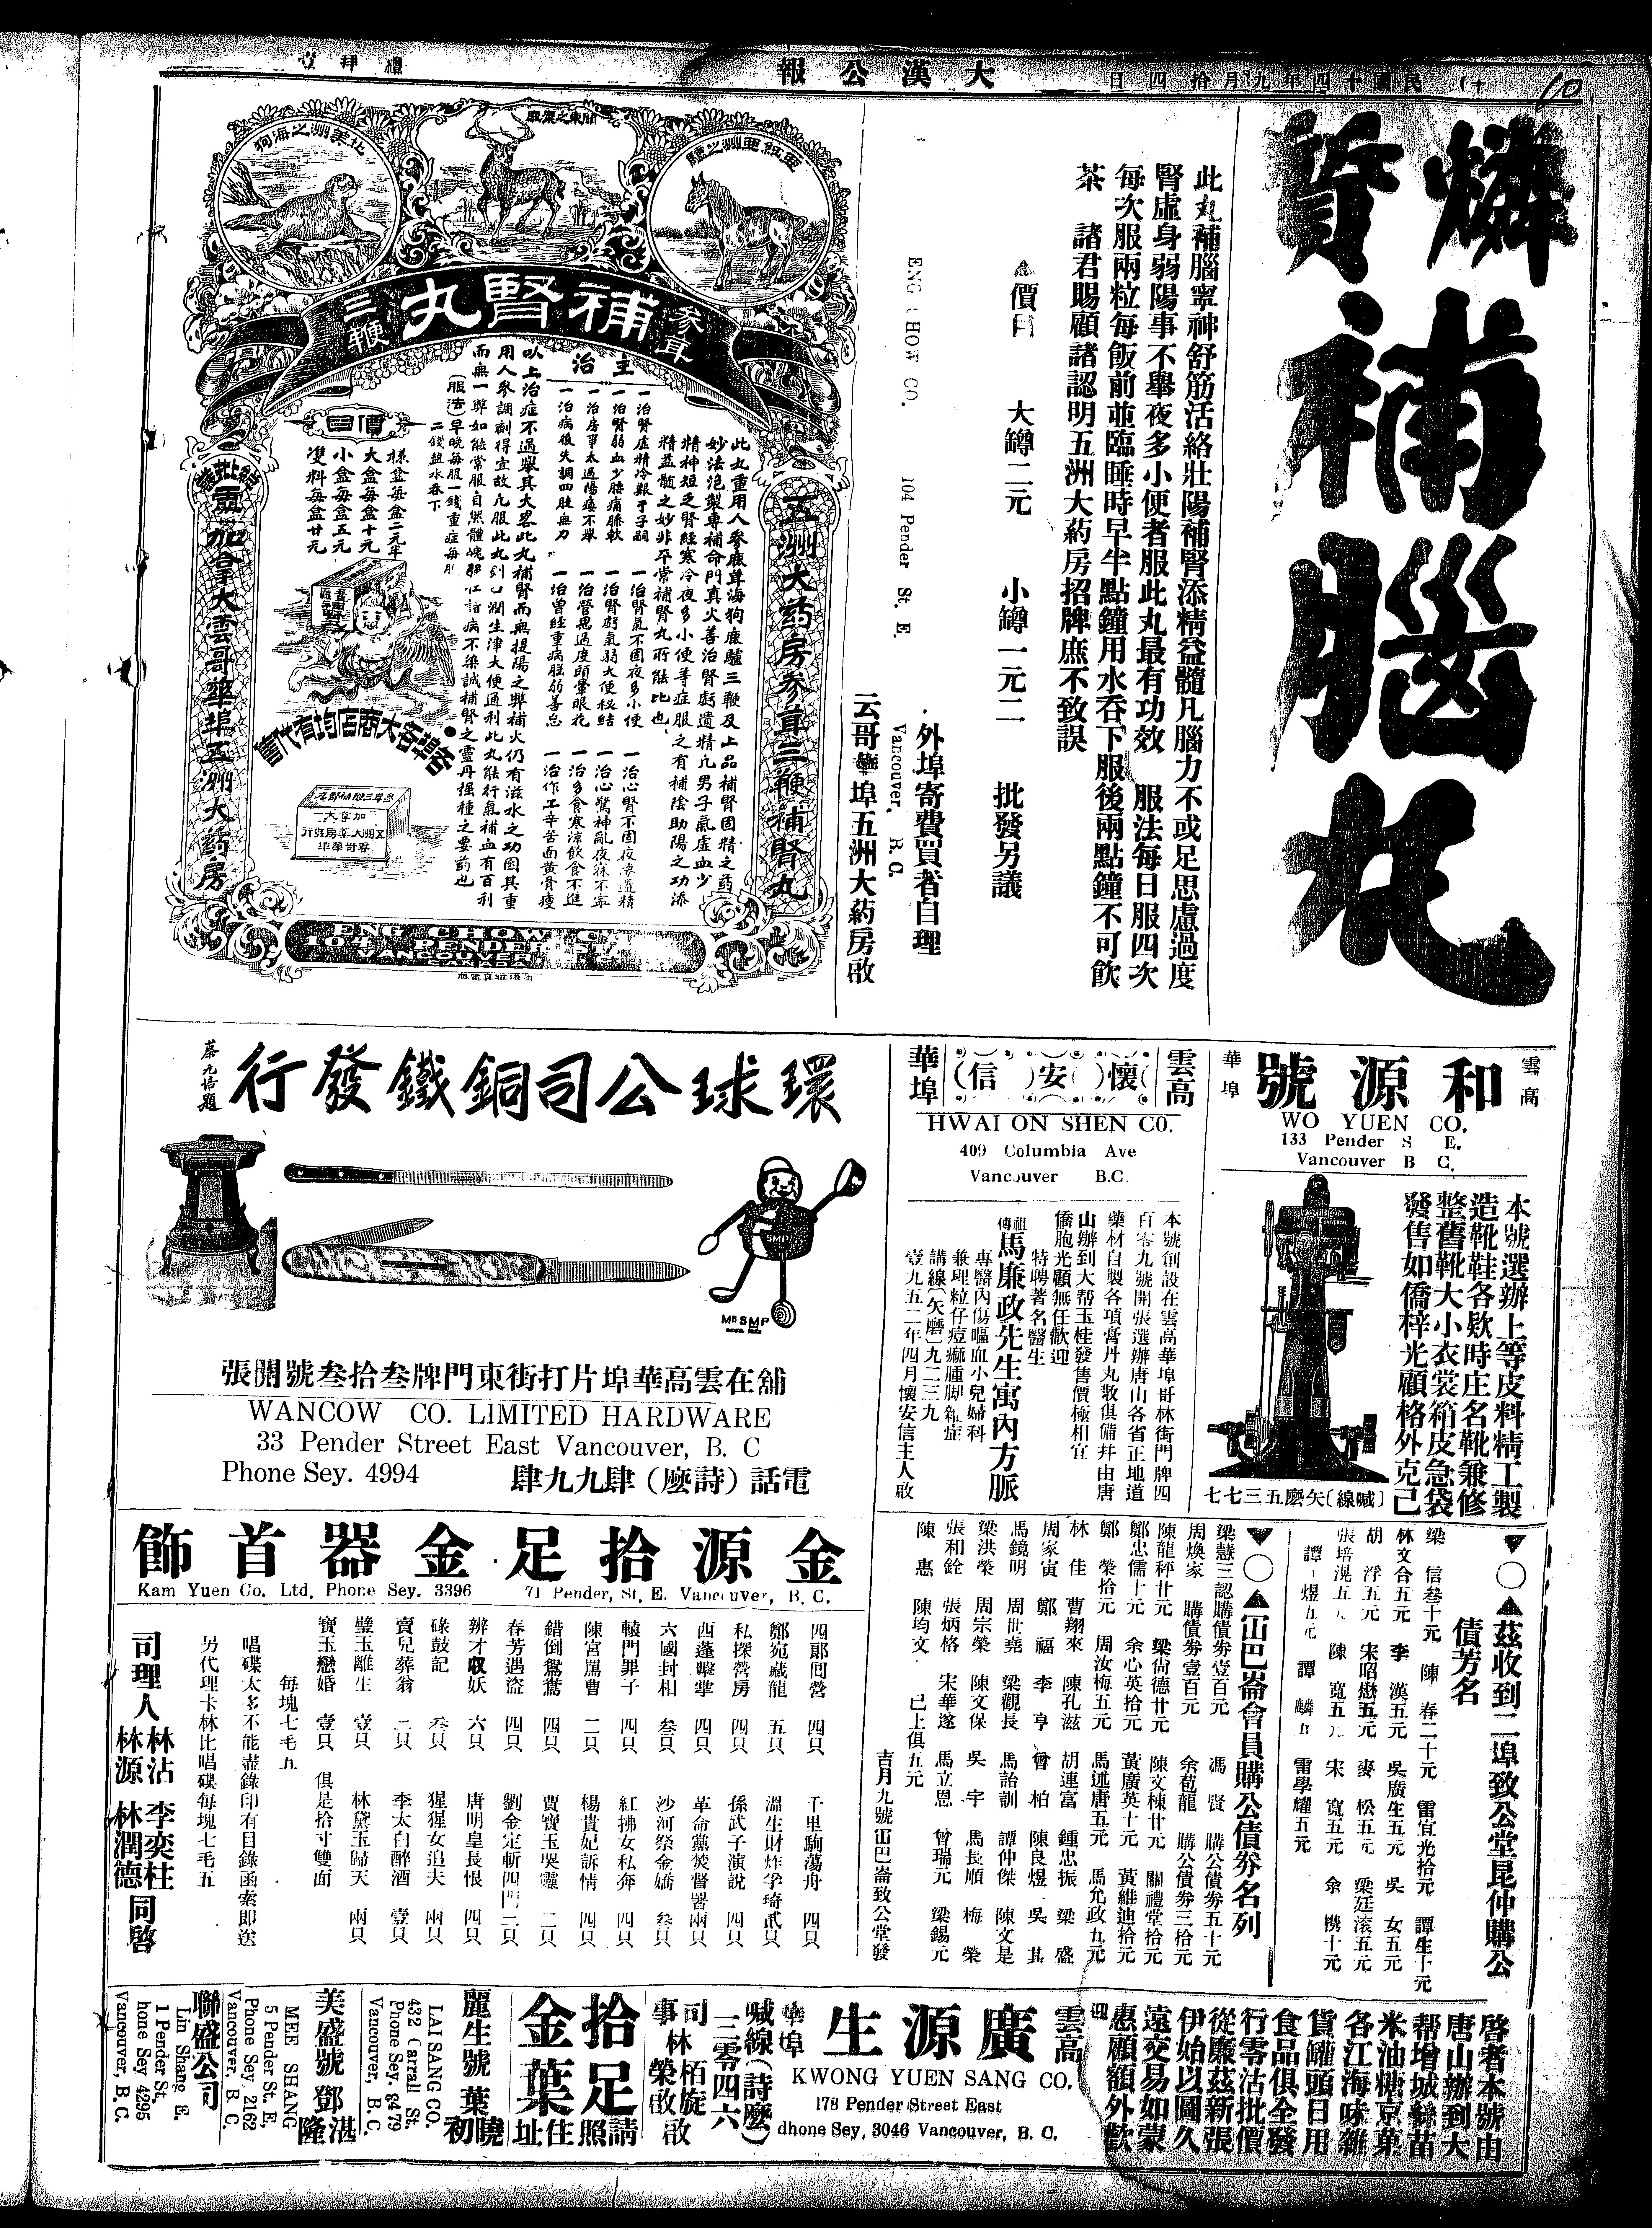 民國十四年九月拾四日
大漢公報
禮拜
燐質補腦丸
此丸補腦寧神舒筋活絡壯陽補腎添精益髓凡腦力不或足思慮過度
腎虛身弱陽事不舉夜多小便者服此丸最有功效 服法每日服四次
每次服兩粒每飯前並臨睡時早半點鐘用水吞下服後兩點鐘不可飲
茶 諸君賜顧諸認明五洲大药房招牌庶不致誤
價目 大罇二元 小罇一元二 批發另議
外埠寄費買者自理
ENG CHOW CO. 104 Pender St. E. Vancouver, B. C.
云哥華埠五洲大葯房啟
亞細亞洲之驢
關東之鹿
北美洲之海狗
參茸補腎丸三鞭
五洲大药房參茸三鞭補腎丸
此丸重用人參鹿茸海狗鹿驢三鞭及上品補腎固精之药
妙法泡製專補命門真火善治腎虧遺精凡男子氣虛血少
精神短乏腎經寒冷夜多小便等症服之有補陰助陽之功添
精益髓之妙非平常補腎丸所能比也
主治
一治腎虛精冷艱于子嗣 一治腎氣不固夜多小便 一治心腎不固夜夢遺精
一治腎弱血少腰痛膝軟 一治腎虧氣弱大便秘結 一治心驚神亂夜寐不寧
一治房事太過陽痿不舉 一治營思過度頭暈眼花 一治多食寒涼飲食不進
一治病後失調四肢無力 一治曾經重病胚弱善忘 一治作工辛苦面黃骨瘦
以上治症不過舉其大畧此丸補腎而無提陽之弊補火仍有滋水之功因其重
用人參調劑得宜故凡服此丸到口潤生津大便通利此丸能行氣補血有百利
而無一弊如能常服自然體魄壯諸病不染誠補腎之靈丹強種之要药也
(服法)早晚每服一錢重症每服
二錢鹽水吞下
價目
樣盆每盒二元半
大盒每盒十元
小盒每盒五元
雙料每盒廿元
各埠各大商店均有代售
加拿大雲哥華埠五洲大药房
ENG CHOW CO.
104 PENDER ST. E.
VANCOUVER
CANADA
雲高 和源號 華埠
WO YUEN CO.
133 Pender S E.
Vancouver B C.
本號選辦上等皮料精工製
造靴鞋各欵時庄名靴兼修
整舊靴大小衣裳箱皮急袋
發售如僑梓光顧格外克己
(喊線)矢麼五三七七
雲高 懷安信 華埠
HWAI ON SHEN CO.
409 Columbia Ave
Vancouver B.C.
本號創設在雲高華埠哥林街門牌四
百零九號開張選辦唐山各省正地道
藥材自製各項膏丹丸散俱備并由唐
山辦到大帮玉桂發售價極相宜
僑胞光顧無任歡迎
特聘著名醫生
祖傳馬廉政先生寓內方脈
專醫內傷嘔血小兒婦科
兼理粒仔痘癩腫脚雜症
講線(矢磨)九二三九
壹九五二年四月懷安信主人啟
環球公司銅鐵發行
蔡元培題
SMP
MR SMP
舖在雲高華埠片打街東門牌叁拾叁號開張
WANCOW CO. LIMITED HARDWARE
33 Pender Street East Vancouver, B. C
Phone Sey. 4994
電話(詩麼)肆九九肆
▲茲收到二埠致公堂昆仲購公
債芳名
梁 信叁十元 陳 春二十元 雷宜光拾元 譚生十元
林文合五元 李 漢五元 吳廣生五元 吳 女五元
胡 浮五元 宋昭懋五元 麥 松五元 梁廷滾五元
張培混五元 陳 寬五元 宋 寬五元 余 標十元
譚 煜五元 譚 麟五 雷學耀五元
▲山巴崙會員購公債券名列
梁慧三認購債券壹百元 馮 賢 購公債券五十元
周煥家 購債券壹百元 余苟龍 購公債券三拾元
陳龍秤廿元 梁尙德廿元 陳文棟廿元 關禮堂拾元
鄭忠儒十元 余心英拾元 黃廣英十元 黃維迪拾元
鄭 榮拾元 周汝梅五元 馬述唐五元 馬允政九元
林 佳 曹翔來 陳孔滋 胡連富 鍾忠振 梁 盛
周家寅 鄭 福 李 亨 曾 柏 陳良煜 吳 其
馬鏡明 周世堯 梁觀長 馬詒訓 譚仲傑 陳文是
梁洪榮 周宗榮 陳文保 吳 宇 馬長順 梅 榮
張和銓 張炳恪 宋華遂 馬立恩 曾瑞元 梁錫元
陳 惠 陳均文 已上俱五元
吉月九號山巴崙致公堂發
金源拾足金器首飾
Kam Yuen Co. Ltd. Phone Sey. 3396 71 Pender, St. E. Vancouver, B. C.
四郎囘營 四只 千里駒蕩舟 四只
鄭宛藏龍 五只 溫生財炸孚琦 貳只
私探營房 四只 孫武子演說 四只
四蓬擊掌 四只 革命黨焚督署 兩只
六國封相 叁只 沙河祭金嬌 叁只
轅門罪子 四只 紅拂女私奔 四只
陳宮罵曹 二只 楊貴妃訴情 四只
錯倒鴛鴦 四只 賈寶玉哭靈 二只
春芳遇盜 四只 劉金定斬四門 二只
辨才収妖 六只 唐明皇長恨 四只
碌鼓記 叁只 猩猩女追夫 兩只
賣兒葬翁 二只 李太白醉酒 壹只
璧玉離生 壹只 林黛玉歸天 兩只
寶玉戀婚 壹只 俱是拾寸雙面
每塊七毛九
唱碟太多不能盡錄印有目錄函索即送
另代理卡林比唱碟每塊七毛五
司理人 林沾 李奕柱 林源 林潤德 同啓
啓者本號由
唐山辦到大
帮增城絲苗
米油糖京菓
各江海味雜
貨罐頭日用
食品俱全發
行零沽批價
從廉茲新張
伊始以圖久
遠交易如蒙
惠顧額外歡
迎
雲高 廣源生 華埠
KWONG YUEN SANG CO.
178 Pender Street East
phone Sey, 3046 Vancouver, B. C.
喊線(詩麼)
三零四六
司事 林栢旋 榮啟 啟
拾足金葉
請照住址
麗生號 葉曉初
LAI SANG CO.
432 Carrall St.
Phone Sey. 8479
Vancouver, B. C.
美盛號 鄧湛隆
MEE SHANG
5 Pender St. E,
Phone Sey. 2162
Vancouver, B. C.
聯盛公司
Lin Shang E.
1 Pender St.
hone Sey 4295
Vancouver, B. C.